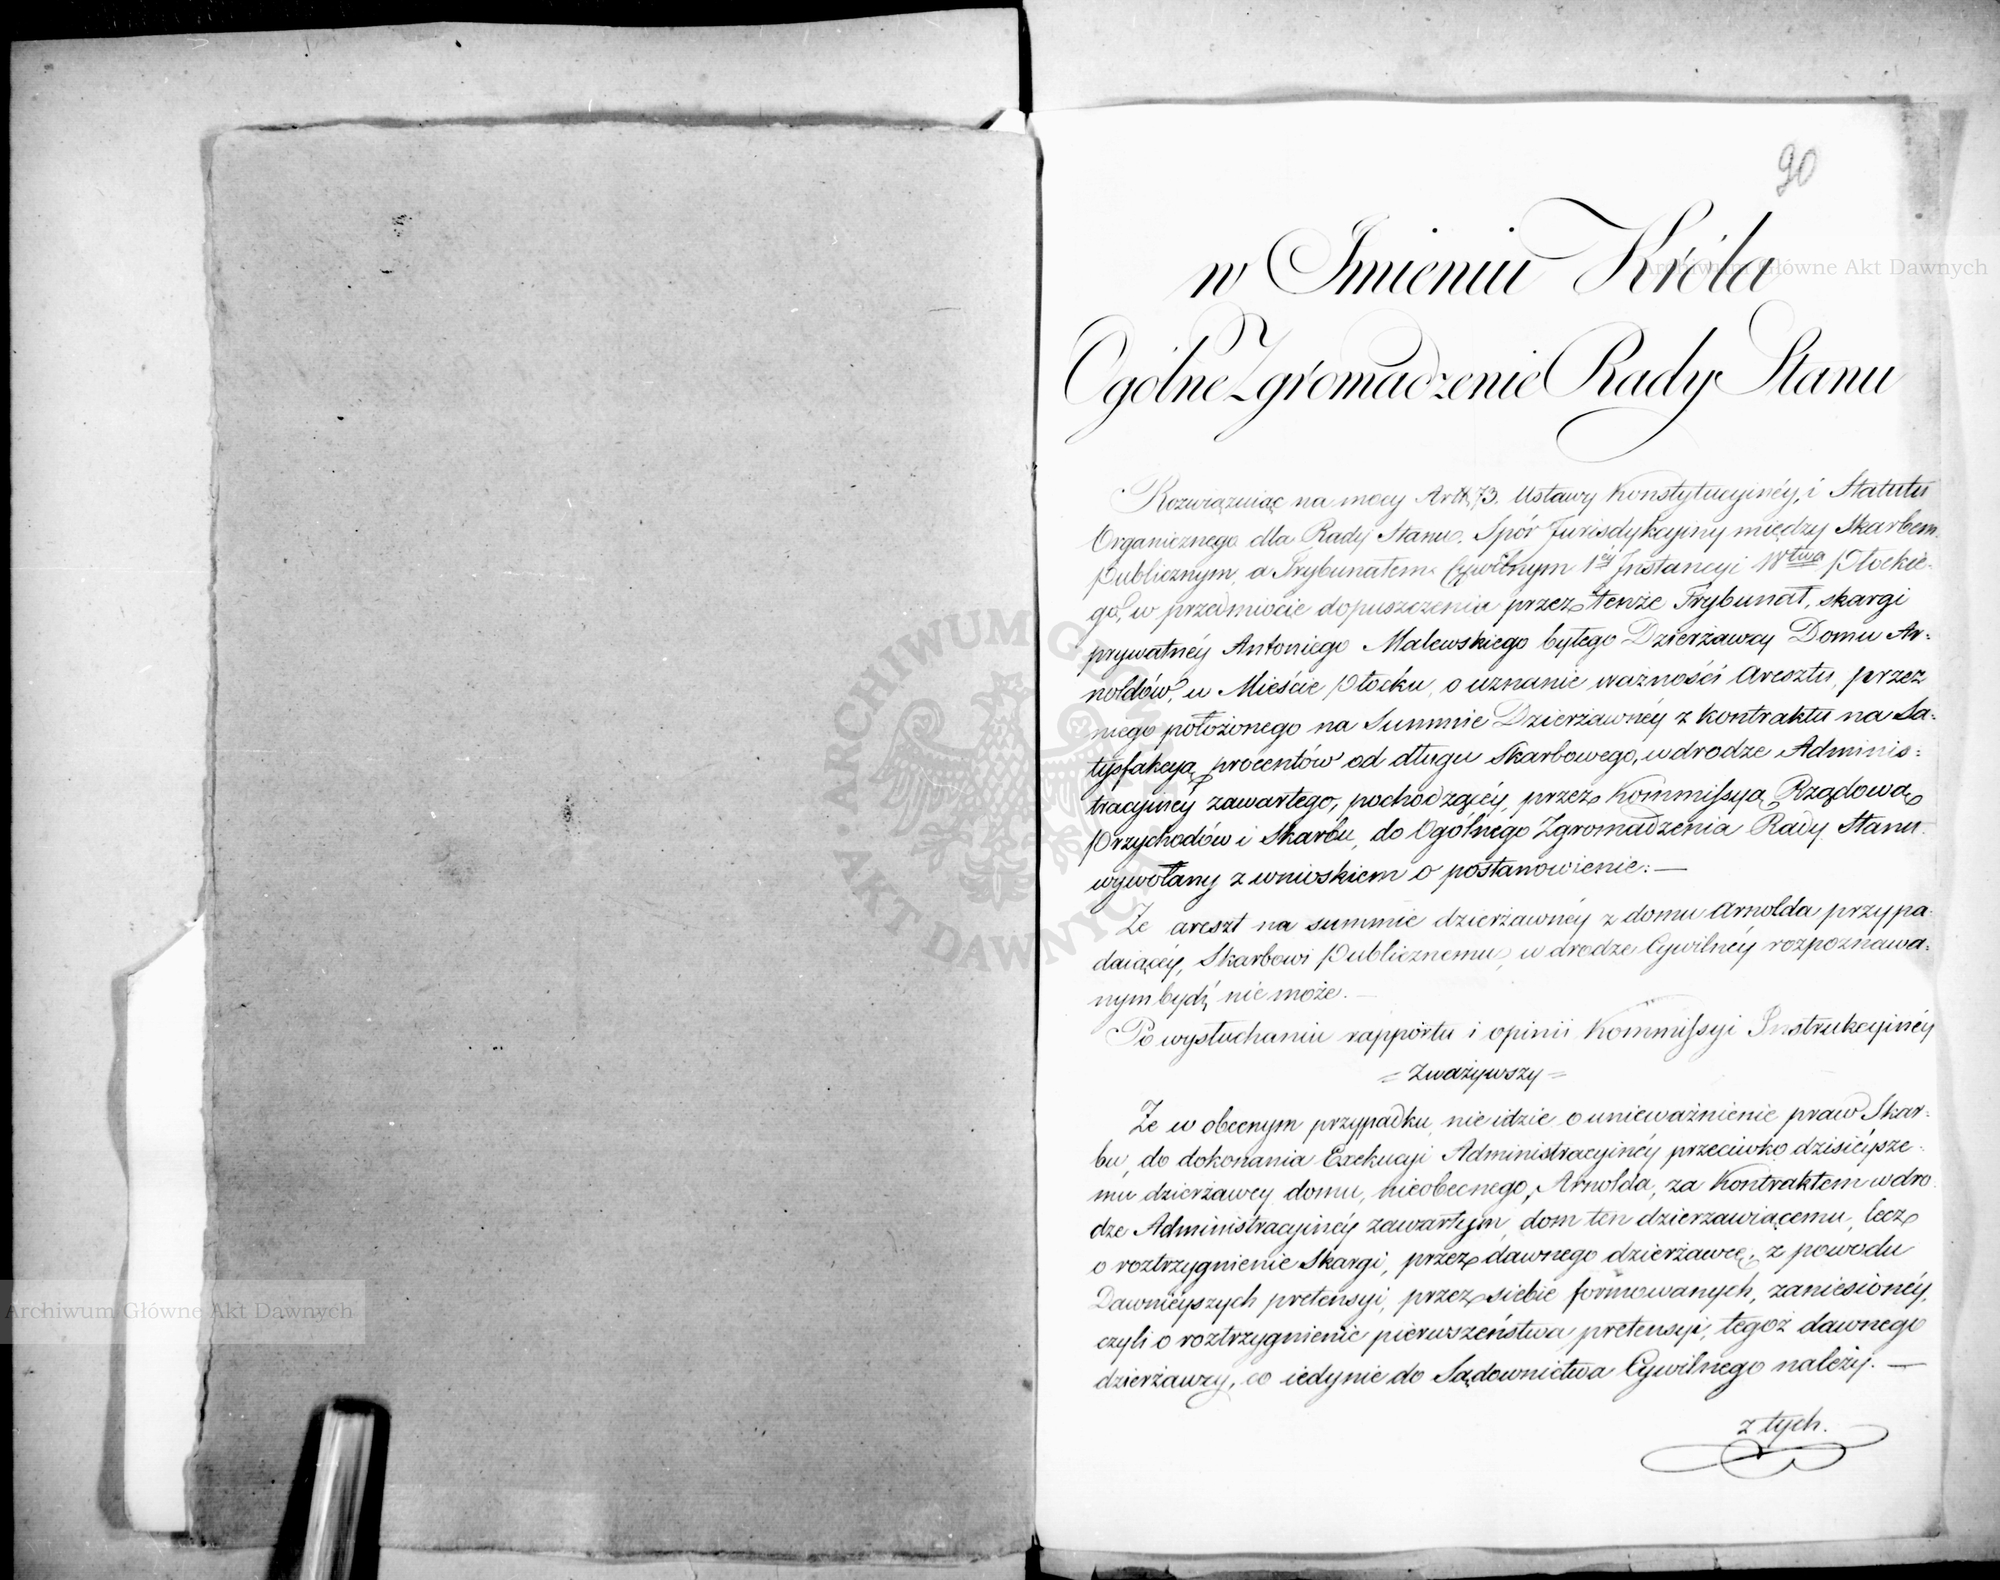 90
w Imieniu Króla
Ogólne Zgromadzenie Rady Stanu
Rozwiązuiąc na mocy Artt. 73. Ustawy Konstytucyinéy, i Statutu
Organicznego dla Rady Stanu. Spór Jurisdykcyiny między Skarbem
Publicznym, a Trybunałem Cywilnym 1éy Instancyi Wtwa Płockie-
go, w przedmiocie dopuszczenia przez tenże Trybunał, skargi
prywatnéy Antoniego Malewskiego byłego Dzierżawcy Domu Ar-
noldów, w Mieście Płocku, o uznanie ważności Aresztu, przez
niego położonego na Summie Dzierżawnéy z kontraktu na Sa-
tysfakcyą procentów od długu Skarbowego, w drodze Adminis-
tracyinéy zawartego, pochodzącéy, przez Kommissyą Rządową
Przychodów i Skarbu, do Ogólnego Zgromadzenia Rady Stanu
wywołany z wnioskiem o postanowienie: —
Że areszt na summie dzierżawnéy z domu Arnolda przypa-
daiącéy, Skarbowi Publicznemu, w drodze Cywilnéy rozpoznawa-
nym bydź nie może. —
Po wysłuchaniu rapportu i opinii Kommissyi Instrukcyinéy
= Zważywszy =
Że w obecnym przypadku, nie idzie o unieważnienie praw Skar-
bu, do dokonania Exekucyi Administracyinéy przeciwko dzisiéysze-
mu dzierżawcy domu, nieobecnego, Arnolda, za Kontraktem w dro-
dze Administracyinéy zawartym, dom ten dzierzawiącemu, lecz
o roztrzygnienie Skargi, przez dawnego dzierżawcę, z powodu
Dawnieyszych pretensyi, przez siebie formowanych, zaniesionéy,
czyli o roztrzygnienie pierwszeństwa pretensyi, tegoż dawnego
dzierżawcy, co iedynie do Sądownictwa Cywilnego należy. —
z tych.
Archiwum Główne Akt Dawnych
Archiwum Główne Akt Dawnych
ARCHIWUM GŁÓWNE AKT DAWNYCH